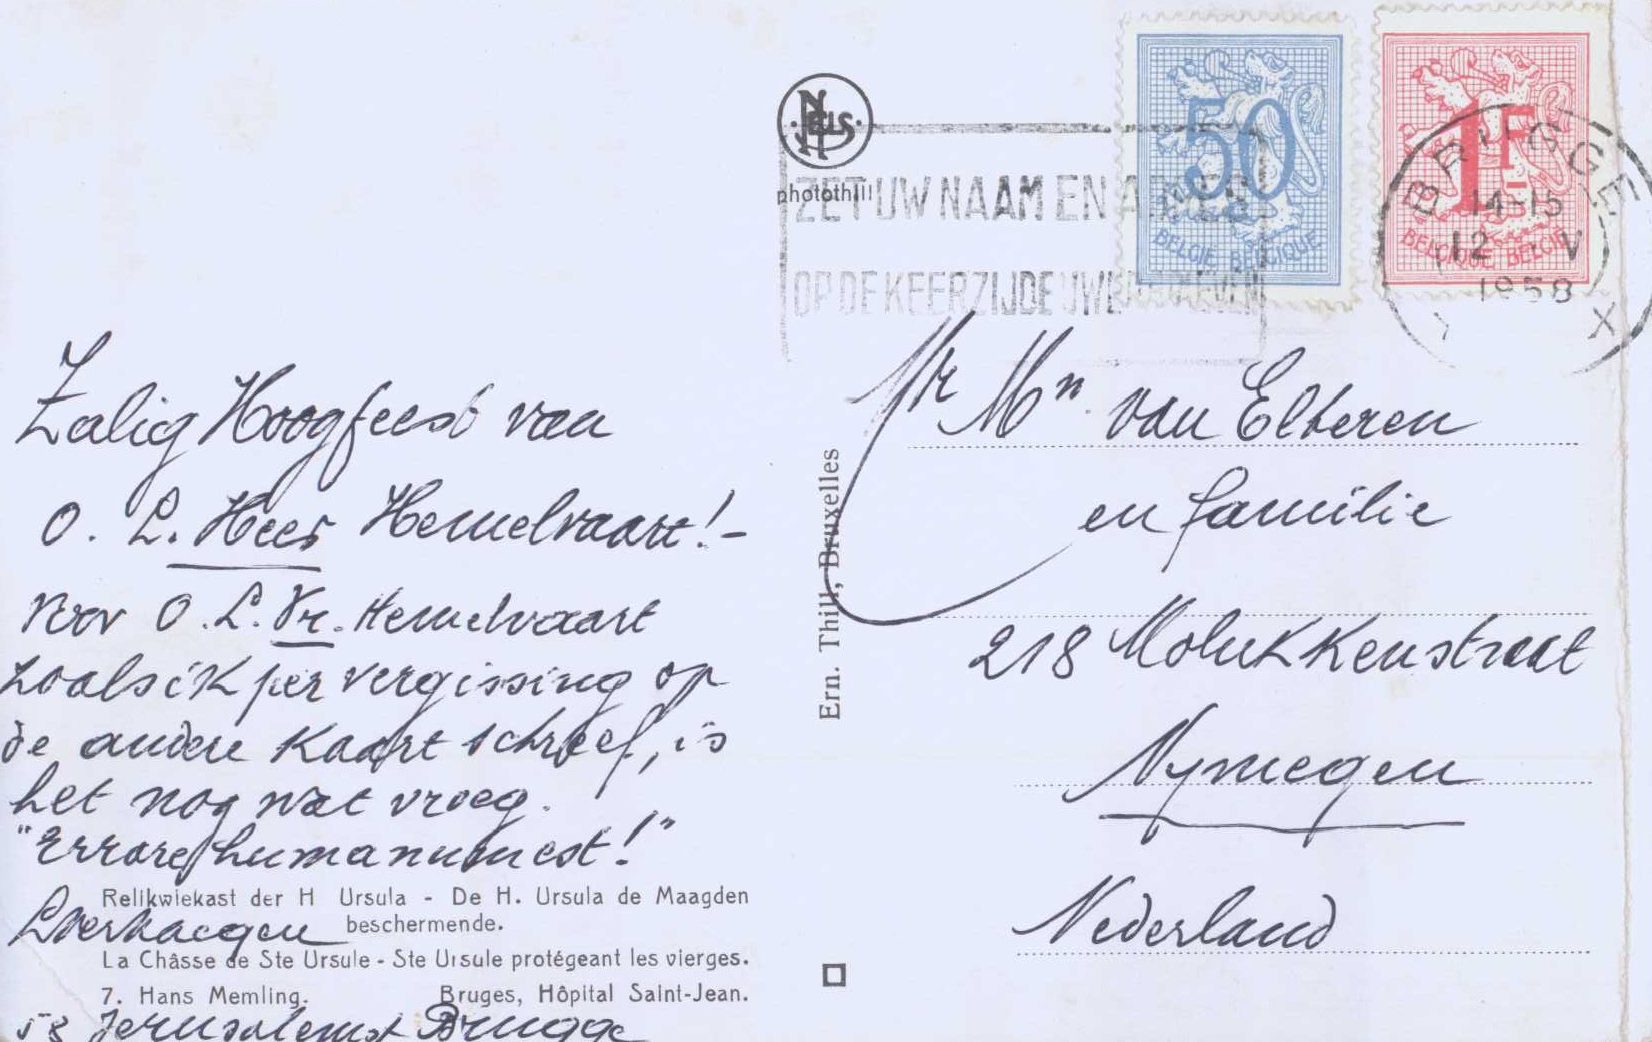 Zalig Hoogfeest van
O. L. Heer Hemelvaart! -
Voor O. L. Vr. Hemelvaart
zoals ik per vergissing op
de andere Kaart schreef, is
het nog wat vroeg.
"Errare humanum est!"
Relikwiekast der H Ursula - De H. Ursula de Maagden
beschermende.
La Châsse de Ste Ursule - Ste Ursule protégeant les vierges.
7. Hans Memling. Bruges, Hôpital Saint-Jean.
58 Jerusalemst Brugge
NELS
photothill
Ern. Thill, Bruxelles
ZET UW NAAM EN ADRES
OP DE KEERZIJDE UWER
50
BELGIE BELGIQUE
1F
BELGIQUE BELGIE
BRUGGE
14-15
12 V
1958
X
Mr Mn van Elteren
en familie
218 Molukkenstraat
Nymegen
Nederland